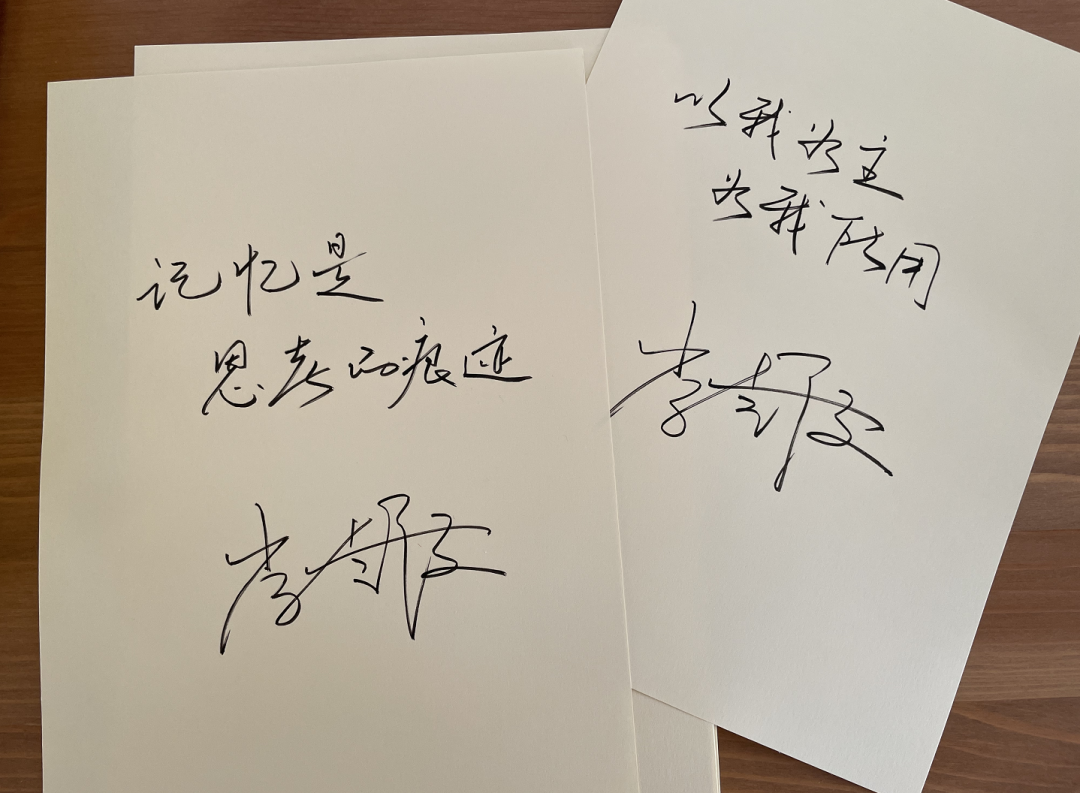 记忆是
思考的痕迹
李
以我为主
为我所用
李